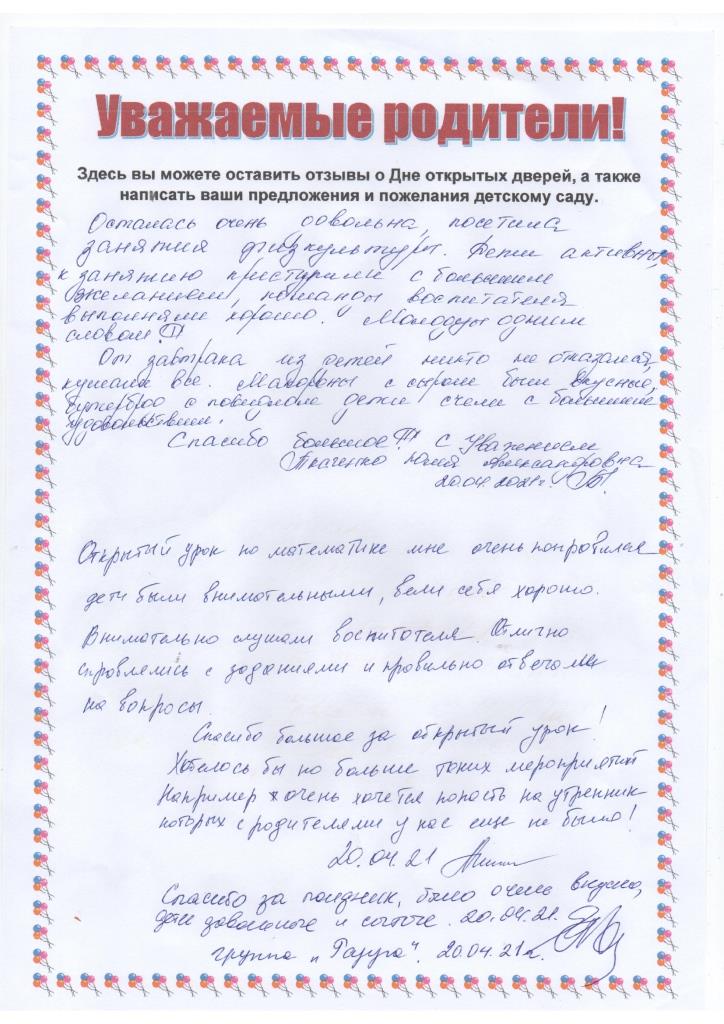 Уважаемые родители!
Здесь вы можете оставить отзывы о Дне открытых дверей, а также
написать ваши предложения и пожелания детскому саду.
Осталась очень довольна, посетила
занятия физкультуры. Дети активны,
к занятию приступили с большим
желанием, команды воспитателя
выполняли хорошо. Молодцы одним
словом!
От завтрака из детей никто не отказался,
кушали все. Макароны с сыром были вкусные,
бутерброд с повидлом дети съели с большим
удовольствием.
Спасибо большое! С Уважением
Ткаченко Юлия Александровна
20.04.2021г.
Открытый урок по математике мне очень понравился
дети были внимательными, вели себя хорошо.
Внимательно слушали воспитателя. Отлично
справлялись с заданиями и правильно отвечали
на вопросы.
Спасибо большое за открытый урок!
Хотелось бы по больше таких мероприятий
Например очень хочется попасть на утренник
которых с родителями у нас еще не было!
20.04.21
Спасибо за полдник, было очень вкусно,
дети довольные и сытые. 20.04.21.
группа "Радуга". 20.04.21г.